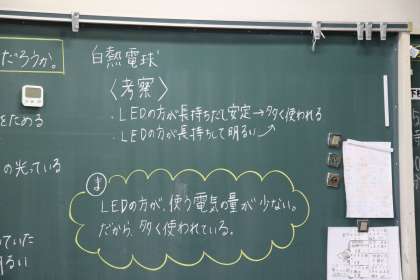 だろうか。
白熱電球
〈考察〉
・LEDの方が長持ちだし安定→多く使われる
・LEDの方が長持ちして明るい
をためる
の光っている
ま
LEDの方が、使う電気の量が少ない。
だから、多く使われている。
っていた
明るい